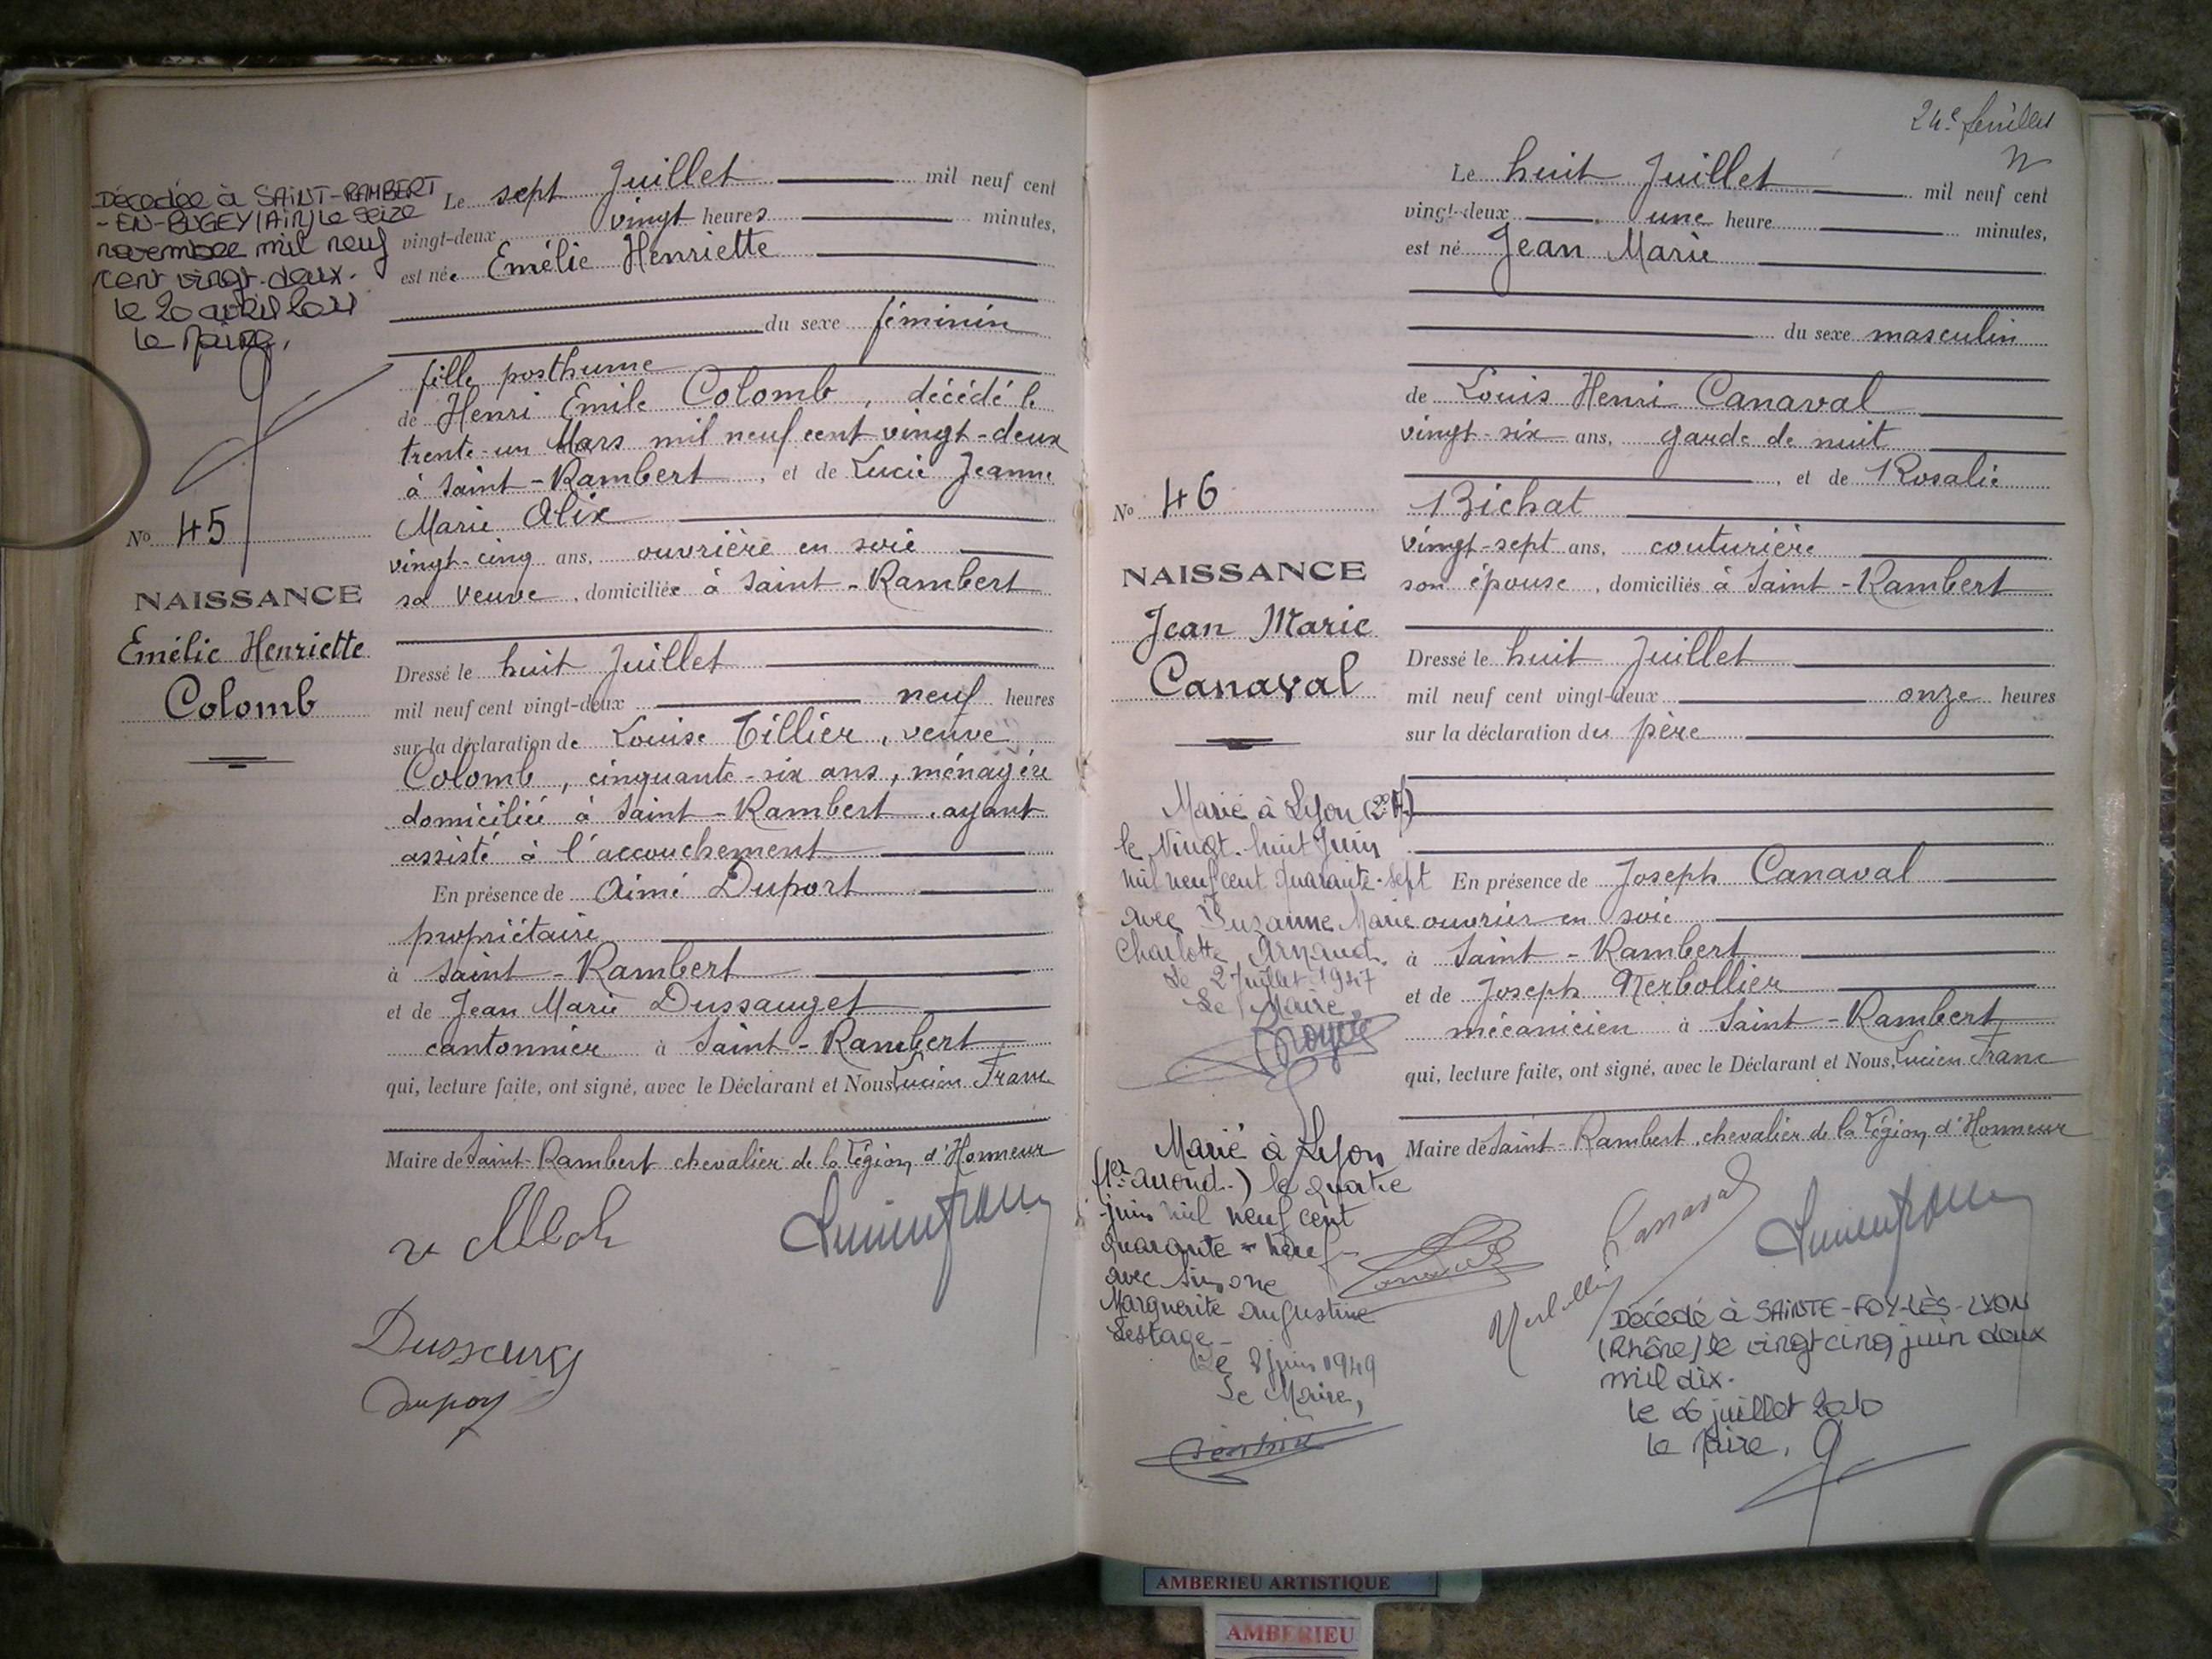 Décédée à SAINT-RAMBERT
-EN-BUGEY (Ain) le seize
novembre mil neuf
cent vingt-deux.
le 20 avril
le Maire,
No 45
NAISSANCE
Emélie Henriette
Colomb
Le sept Juillet mil neuf cent
vingt-deux vingt heures minutes,
est née Emélie Henriette
du sexe féminin
fille posthume
de Henri Emile Colomb, décédé le
trente-un Mars mil neuf cent vingt-deux
à Saint-Rambert, et de Lucie Jeanne
Marie Alix
vingt-cinq ans, ouvrière en soie
sa veuve, domiciliée à Saint-Rambert
Dressé le huit Juillet
mil neuf cent vingt-deux neuf heures
sur la déclaration de Louise Tillier, veuve
Colomb, cinquante-six ans, ménagère
domiciliée à Saint-Rambert, ayant
assisté à l'accouchement
En présence de Aimé Duport
propriétaire
à Saint-Rambert
et de Jean Marie Dussauget
cantonnier à Saint-Rambert
qui, lecture faite, ont signé, avec le Déclarant et Nous, Lucien Franc
Maire de Saint-Rambert chevalier de la Légion d'Honneur
24e feuillet
No 46
NAISSANCE
Jean Marie
Canaval
Marié à Lyon (2e A)
le Vingt-huit Juin
mil neuf cent quarante-sept
avec Suzanne Marie
Charlotte Arnaud.
Le 2 Juillet 1947
Le Maire,
Marié à Lyon
(1er arrond.) le quatre
juin mil neuf cent
quarante-neuf
avec Simone
Marguerite Augustine
Lestage
Le 8 juin 1949
Le Maire,
Le huit Juillet mil neuf cent
vingt-deux une heure minutes,
est né Jean Marie
du sexe masculin
de Louis Henri Canaval
vingt-six ans, garde de nuit
, et de Rosalie
Bichat
vingt-sept ans, couturière
son épouse, domiciliés à Saint-Rambert
Dressé le huit Juillet
mil neuf cent vingt-deux onze heures
sur la déclaration du père
En présence de Joseph Canaval
ouvrier en soie
à Saint-Rambert
et de Joseph Nerbollier
mécanicien à Saint-Rambert
qui, lecture faite, ont signé, avec le Déclarant et Nous, Lucien Franc
Maire de Saint-Rambert, chevalier de la Légion d'Honneur
Canaval
Décédé à SAINTE-FOY-LÈS-LYON
(Rhône) le vingt cinq juin deux
mil dix.
le 06 juillet 2010
le Maire,
AMBERIEU ARTISTIQUE
AMBERIEU